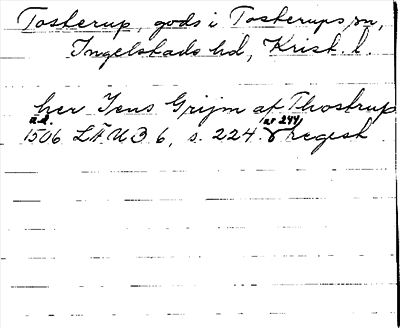 Tosterup, gods i Tosterups sn,
Ingelstads hd, Krist. l.
her Jens Grijm af Thostrup
a.d. (nr 244)
1506 LÄUB 6, s. 224. regest